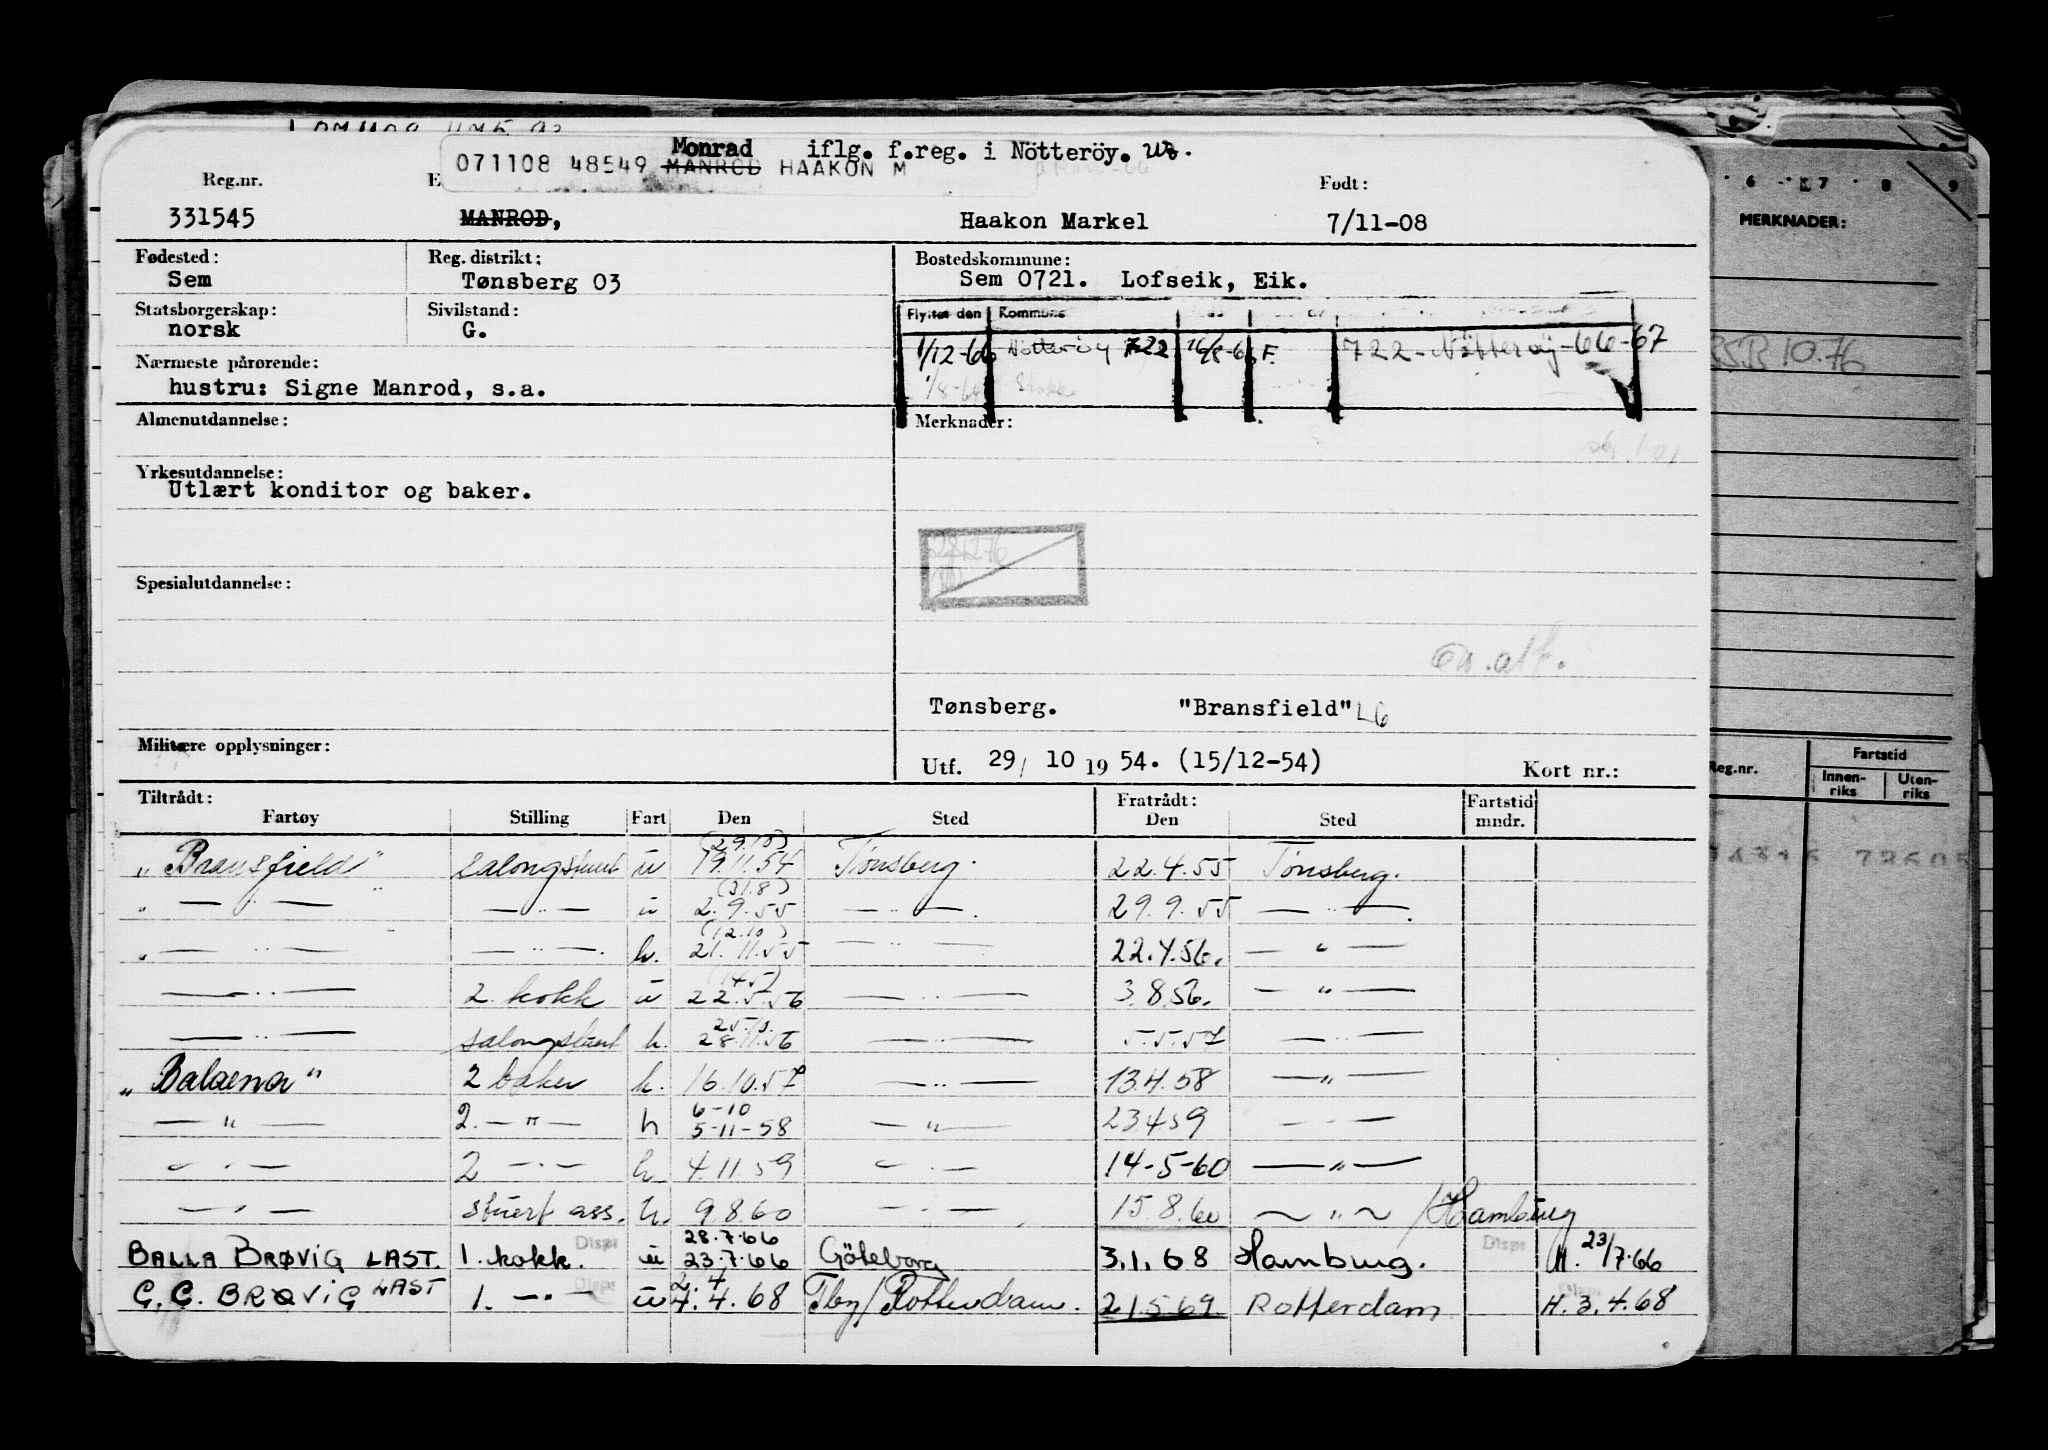 Monrad iflg. f.reg. i Nötteröy.
071108 48549 MANROD HAAKON M
Reg.nr. E Født:
331545 MANROD, Haakon Markel 7/11-08
Fødested: Reg. distrikt: Bostedskommune:
Sem Tønsberg 03 Sem 0721. Lofseik, Eik.
Statsborgerskap: Sivilstand: Flyttet den Kommune
norsk G.
1/12-66 Nötteröy 722 16/8-66 F. 722-Nötterøy-66-67
Nærmeste pårørende:
hustru: Signe Manrod, s.a. 1/8-64 Stokke
Almenutdannelse: Merknader:
Yrkesutdannelse:
Utlært konditor og baker.
Spesialutdannelse:
Tønsberg. "Bransfield" LG
Militære opplysninger:
Utf. 29/ 10 19 54. (15/12-54) Kort nr.:
Tiltrådt: Fratrådt: Fartstid
Fartøy Stilling Fart Den Sted Den Sted mndr.
(29.10)
"Bransfield" salongstuert u 19.11.54 Tønsberg. 22.4.55 Tønsberg.
(31.8)
" — " — — " — u 2.9.55 — " —. 29.9.55 — " —.
(12.10)
" — " — — " —. h. 21.11.55 — " — 22.4.56. — " —
(14.5)
— " — 2. kokk u 22.5.56 — " — 3.8.56. — " —
25.10.
— " — salongstuert h. 28.11.56 — " — 5.5.57 — " —
"Balaena" 2 baker h. 16.10.57 — " — 13.4.58 — " —
6-10
— " — 2. — " — h 5-11-58 — " — 23.4.59 — " —
— " — 2 — " — h. 4.11.59 — " — 14-5-60 — " —
— " — stuert ass. h. 9.8.60 — " — 15.8.60 — " — /Hamburg
28.7.66
BALLA BRØVIG LAST. 1. kokk. u 23.7.66 Göteborg 3.1.68 Hamburg. M. 23/7.66
2. 4
G. C. BRØVIG LAST 1. — " — u 4.4.68 Tby/Rotterdam. 21.5.69. Rotterdam H. 3.4.68
6 7 8 9
MERKNADER:
RSR 10.76
Fartstid
Reg.nr. Innen-riks Uten-riks